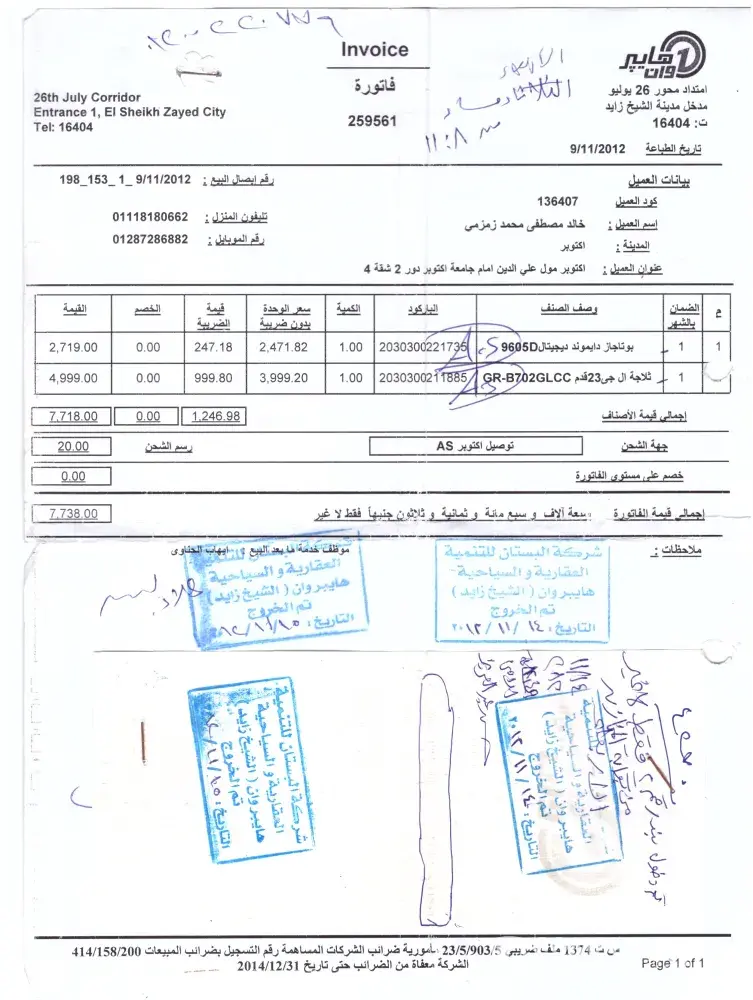 Invoice
فاتورة
259561
26th July Corridor
Entrance 1, El Sheikh Zayed City
Tel: 16404
هايبر وان
امتداد محور 26 يوليو
مدخل مدينة الشيخ زايد
ت: 16404
تاريخ الطباعة 9/11/2012
١١:٨
رقم إيصال البيع : 198_153_ 1_ 9/11/2012
بيانات العميل
كود العميل 136407
تليفون المنزل : 01118180662
إسم العميل : خالد مصطفى محمد زمزمي
رقم الموبايل : 01287286882
المدينة : اكتوبر
عنوان العميل : اكتوبر مول علي الدين امام جامعة اكتوبر دور 2 شقة 4
م الضمان بالشهر وصف الصنف الباركود الكمية سعر الوحدة بدون ضريبة قيمة الضريبة الخصم القيمة
1 1 بوتاجاز دايموند ديجيتال9605D 2030300221735 1.00 2,471.82 247.18 0.00 2,719.00
1 ثلاجة ال جى23قدم GR-B702GLCC 2030300211885 1.00 3,999.20 999.80 0.00 4,999.00
A.S
A.S
إجمالي قيمة الأصناف 1,246.98 0.00 7,718.00
جهة الشحن توصيل اكتوبر AS رسم الشحن 20.00
خصم على مستوى الفاتورة 0.00
إجمالي قيمة الفاتورة سبعة آلاف و سبع مائة و ثمانية و ثلاثون جنيهاً فقط لا غير 7,738.00
ملاحظات :
موظف خدمة ما بعد البيع : ايهاب الحناوى
شركة البستان للتنمية
العقارية و السياحية
هايبر وان ( الشيخ زايد )
تم الخروج
التاريخ : ١٤ / ١١ / ٢٠١٢
العقارية و السياحية
هايبر وان ( الشيخ زايد )
تم الخروج
التاريخ :
شركة البستان للتنمية
العقارية و السياحية
هايبر وان ( الشيخ زايد )
تم الخروج
التاريخ :
للتنمية
العقارية و السياحية
هايبر وان ( الشيخ زايد )
تم الخروج
التاريخ : ١٤ / ١١ / ٢٠١٢
١١/١٤
س ت 1374 ملف ضريبي 23/5/903/5 مأمورية ضرائب الشركات المساهمة رقم التسجيل بضرائب المبيعات 414/158/200
الشركة معفاة من الضرائب حتى تاريخ 2014/12/31
Page 1 of 1